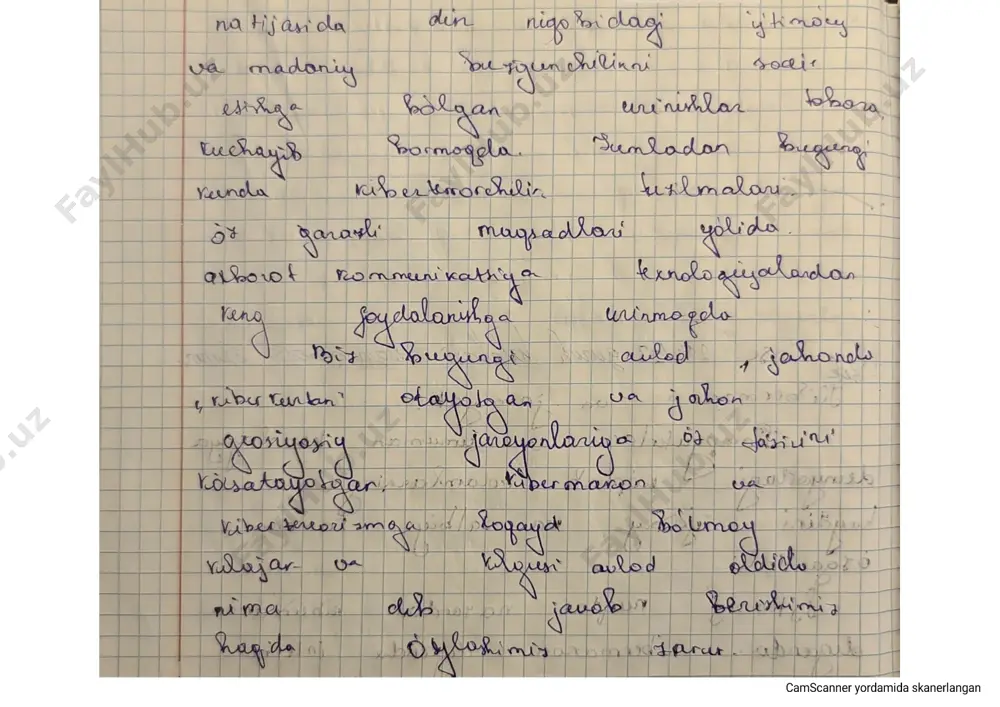 natijasida din niqobidagi ijtimoiy
va madaniy buzgunchilikni sodir
etishga bòlgan urinishlar tobora
kuchayib bormoqda. Jumladan bugungi
kunda kiberterrorchilik tuzilmalari
òz garazli maqsadlari yòlida
axborot kommunikatsiya texnologiyalardan
keng foydalanishga urinmoqda
Biz bugungi avlod, jahonda
otayotgan va jahon
geosiyosiy jarayonlariga òz ta'sirini
kòrsatayotgan. Kibermakon va
kiberterrorizmga loqayd bòlmoy
kelajak va kelgusi avlod oldida
nima deb javob berishimiz
haqida òylashimiz zarur.
FaylHub.uz
CamScanner yordamida skanerlangan